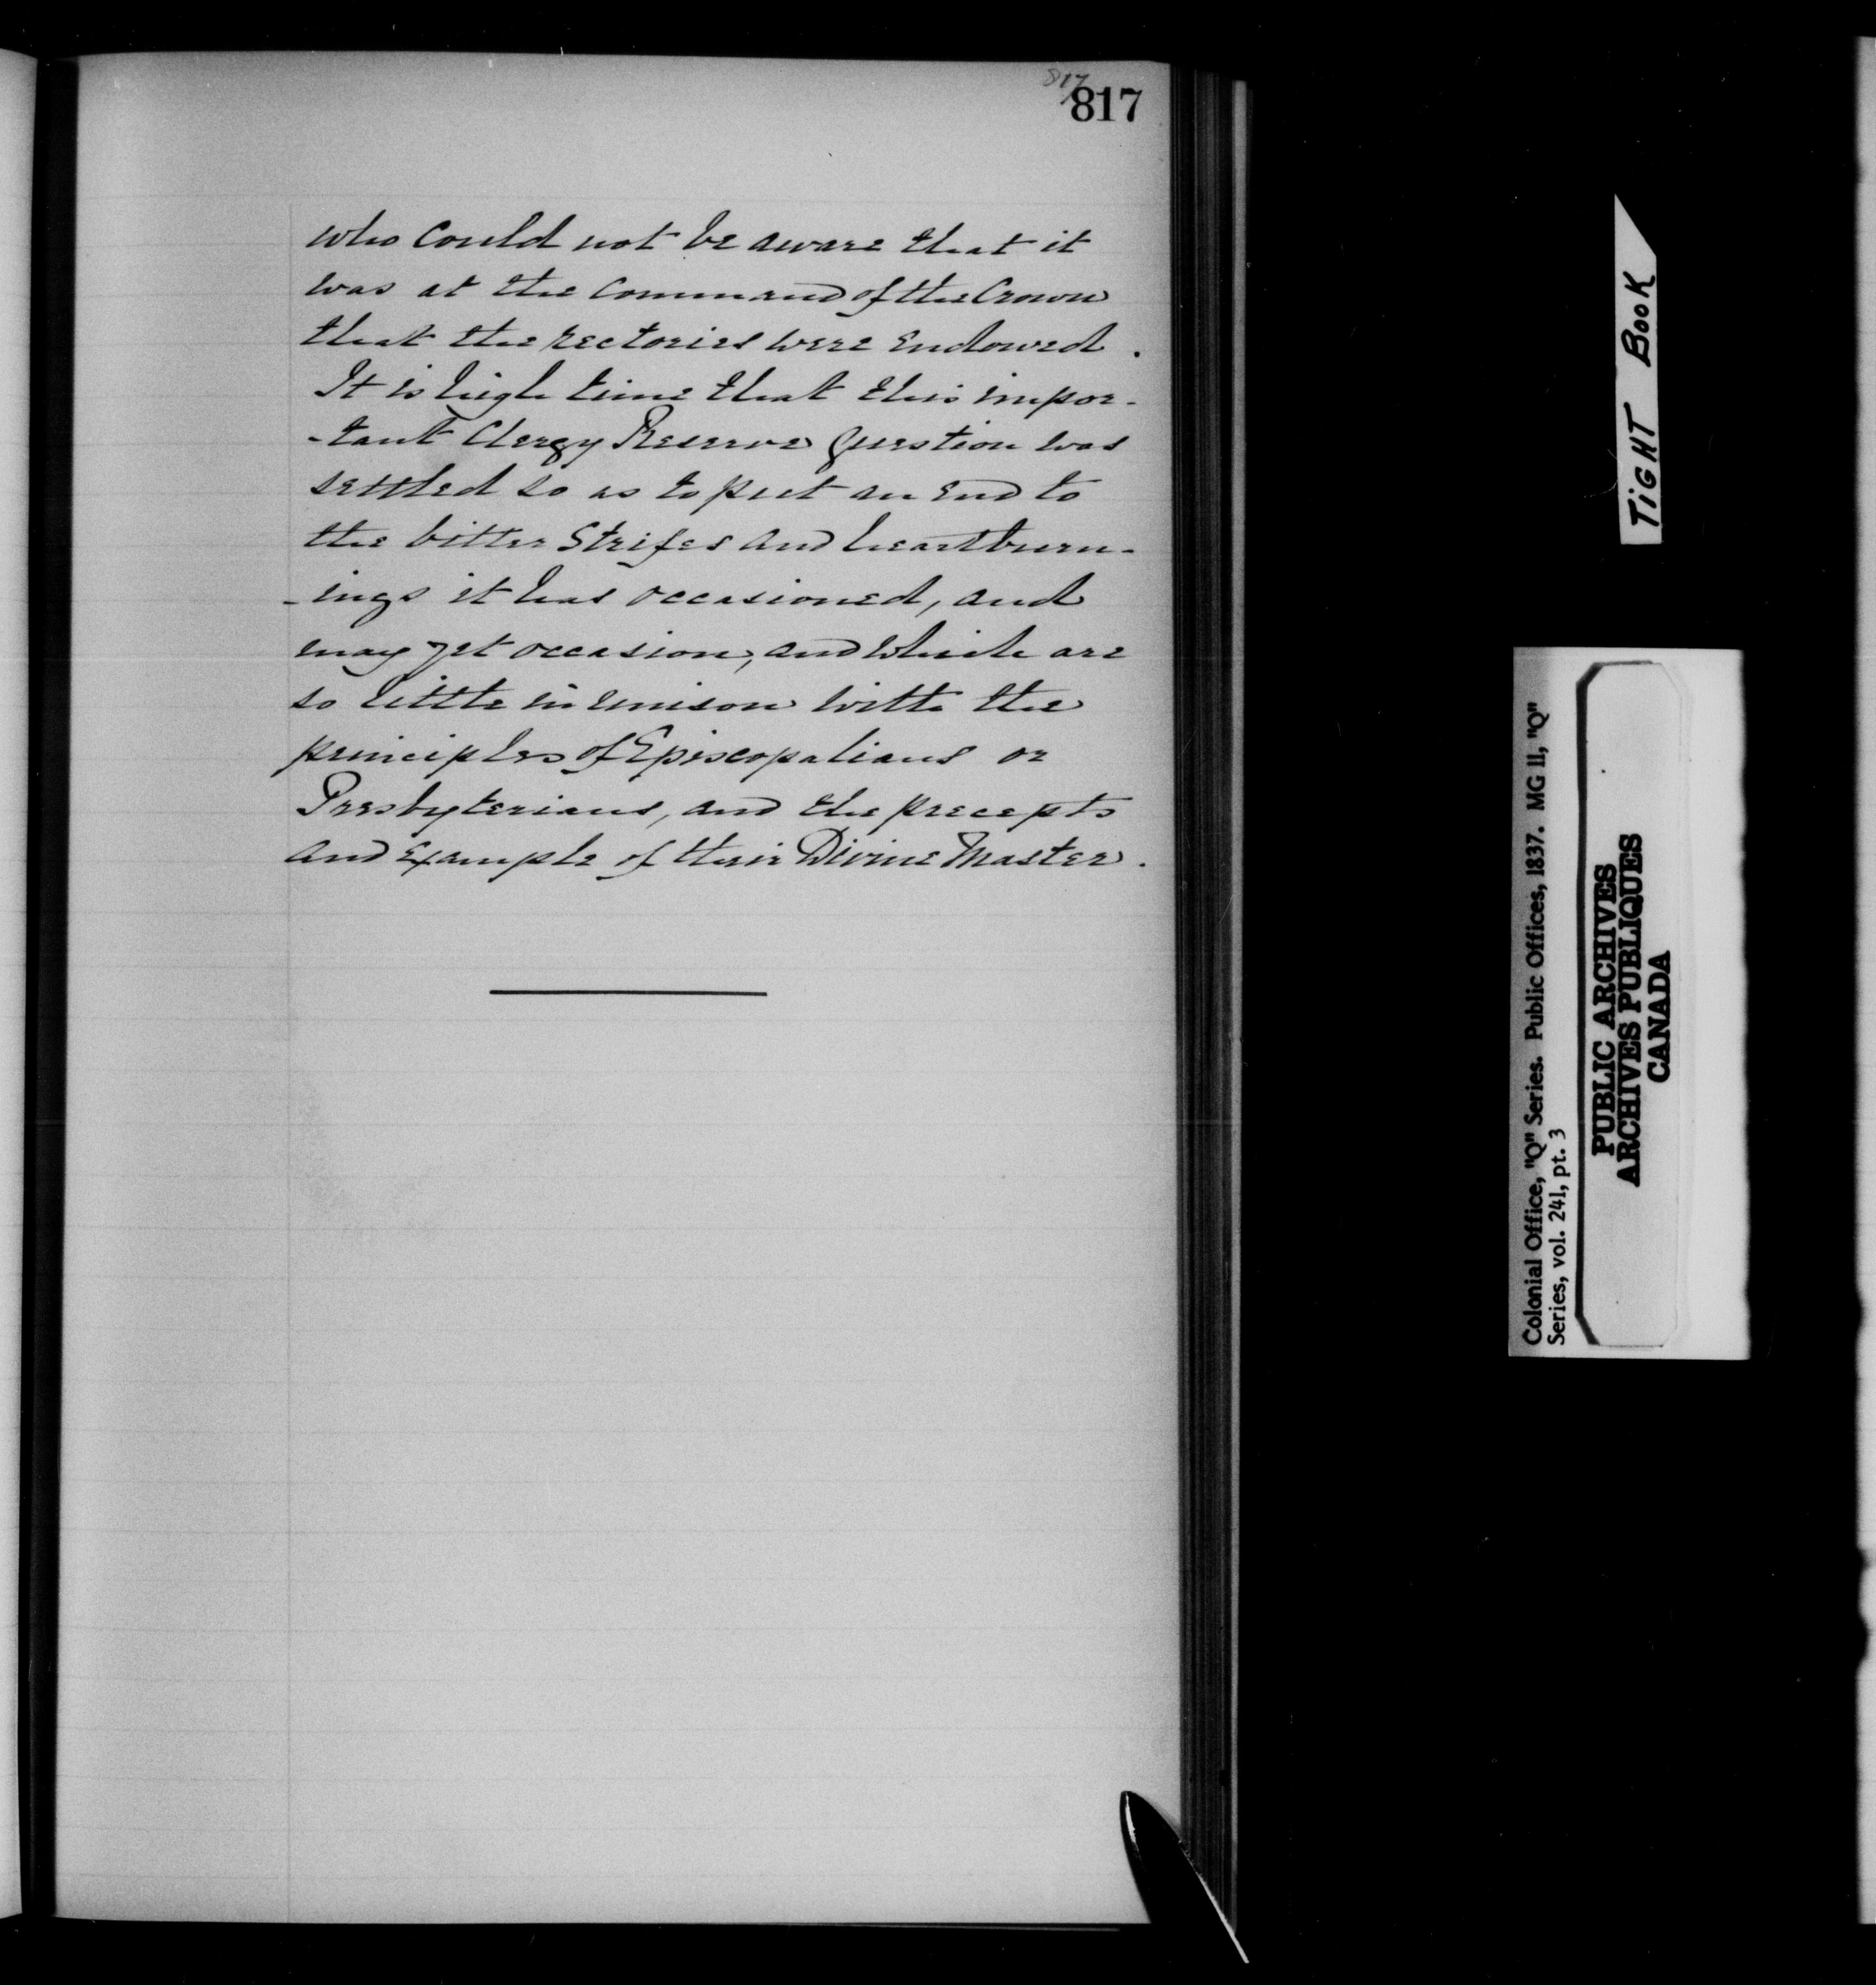 817
817
who could not be aware that it
was at the command of the Crown
that the rectories were endowed.
It is high time that this impor-
-tant Clergy Reserve Question was
settled so as to put an end to
the bitter strifes and heartburn-
-ings it has occasioned, and
may yet occasion, and which are
so little in unison with the
principles of Episcopalians or
Presbyterians, and the precepts
and example of their Divine Master.
TIGHT BOOK
Colonial Office, "Q" Series. Public Offices, 1837. MG 11, "Q"
Series, vol. 241, pt. 3
PUBLIC ARCHIVES
ARCHIVES PUBLIQUES
CANADA